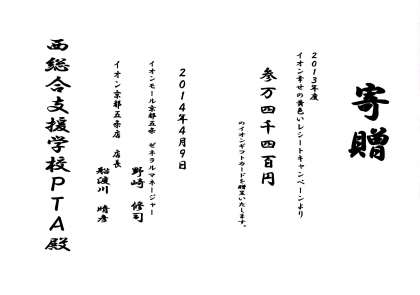 寄贈
2013年度
イオン幸せの黄色いレシートキャンペーンより
参万四千四百円
のイオンギフトカードを贈呈いたします。
2014年4月9日
イオンモール京都五条 ゼネラルマネージャー
野崎 修司
イオン京都五条店 店長
船渡川 晴彦
西総合支援学校PTA殿